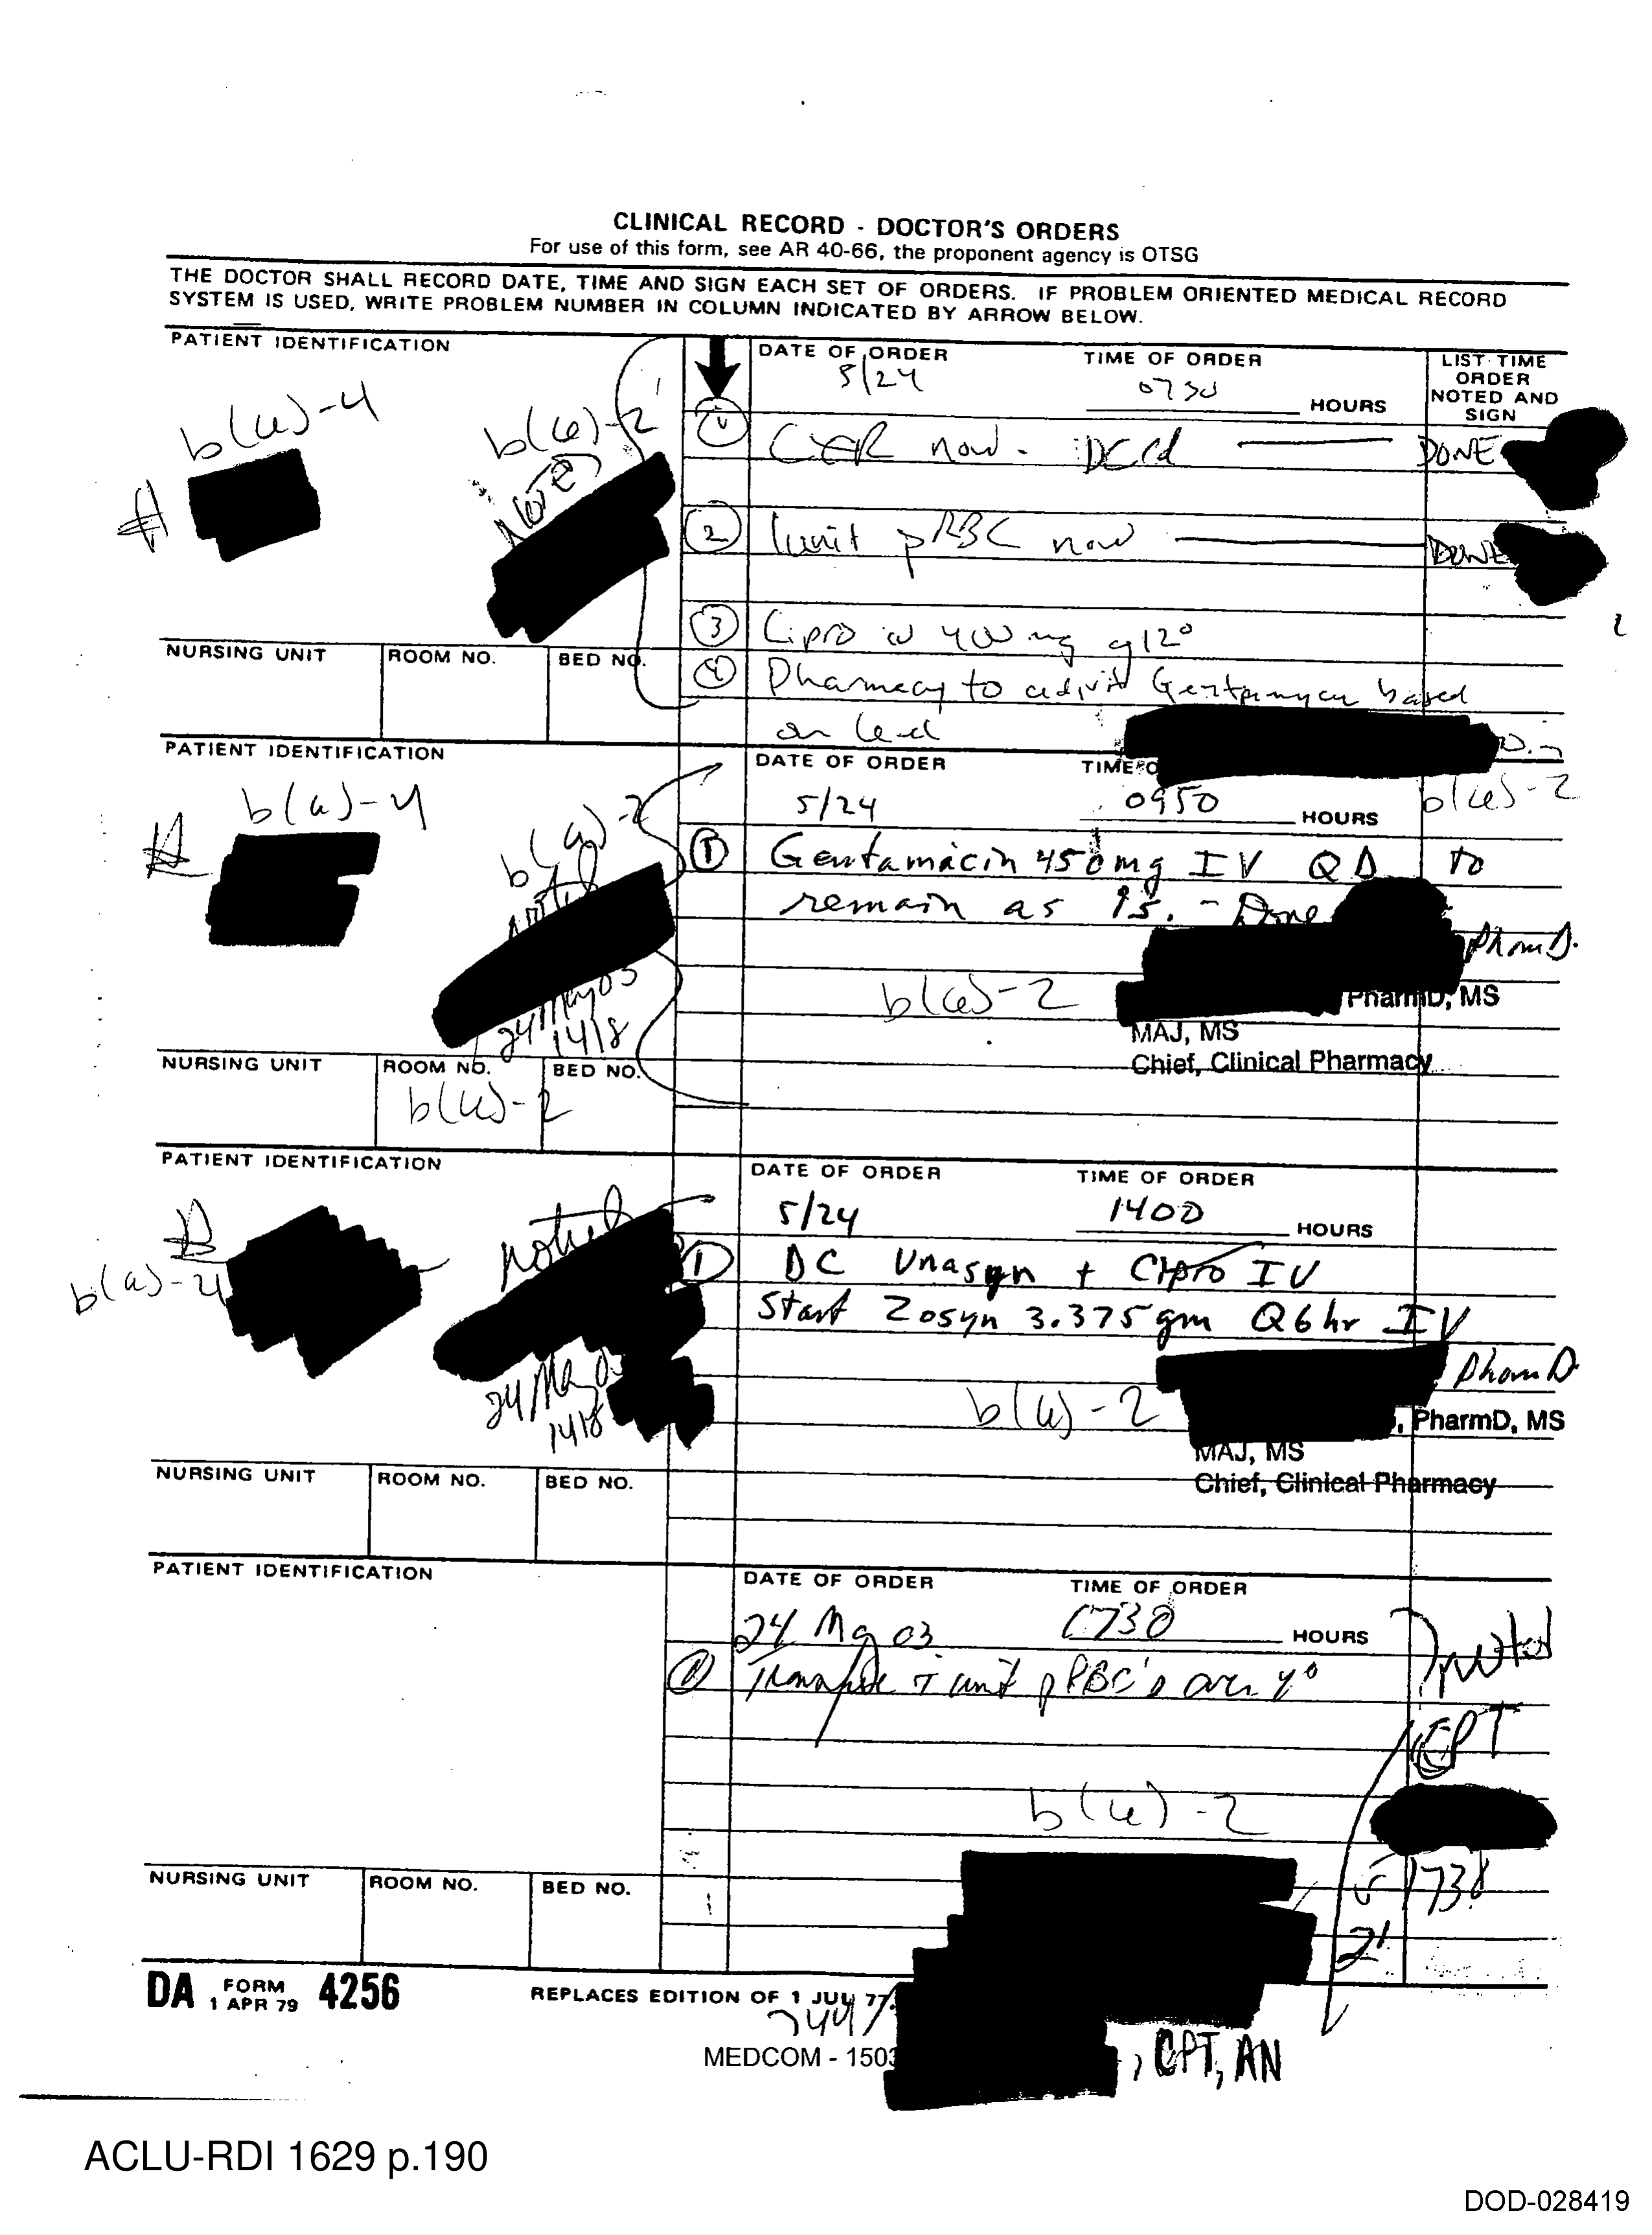 CLINICAL RECORD - DOCTOR'S ORDERS
For use of this form, see AR 40-66, the proponent agency is OTSG
THE DOCTOR SHALL RECORD DATE, TIME AND SIGN EACH SET OF ORDERS. IF PROBLEM ORIENTED MEDICAL RECORD
SYSTEM IS USED, WRITE PROBLEM NUMBER IN COLUMN INDICATED BY ARROW BELOW.
PATIENT IDENTIFICATION
DATE OF ORDER
5/24
TIME OF ORDER
0730 HOURS
LIST TIME
ORDER
NOTED AND
SIGN
b(6)-4
b(6)-2
#
NOTED
1 CXR now. DC'd DONE
2 1 unit pRBC now DONE
3 Cipro IV 400 mg q12°
4 Pharmacy to adjust Gentamycin based
on
NURSING UNIT
ROOM NO.
BED NO.
PATIENT IDENTIFICATION
DATE OF ORDER
5/24
0950 HOURS
b(6)-2
b(6)-4
b(6)-2
#
noted
24 May 03
1418
1 Gentamicin 450mg IV QD to
remain as is. - Done
PharmD.
b(6)-2
PharmD, MS
MAJ, MS
Chief, Clinical Pharmacy
NURSING UNIT
ROOM NO.
b(6)-2
BED NO.
PATIENT IDENTIFICATION
DATE OF ORDER
5/24
TIME OF ORDER
1400 HOURS
#
b(6)-4
noted
24 May 0
1418
1 DC Unasyn + Cipro IV
Start Zosyn 3.375 gm Q6hr IV
PharmD
b(6)-2
, PharmD, MS
MAJ, MS
Chief, Clinical Pharmacy
NURSING UNIT
ROOM NO.
BED NO.
PATIENT IDENTIFICATION
DATE OF ORDER
24 May 03
TIME OF ORDER
1730 HOURS
noted
1 Transfuse i unit pRBC's over 4°
CPT
b(6)-2
1738
NURSING UNIT
ROOM NO.
BED NO.
DA FORM 4256
1 APR 79
REPLACES EDITION OF 1 JUL 77.
MEDCOM - 1503
, CPT, AN
ACLU-RDI 1629 p.190
DOD-028419